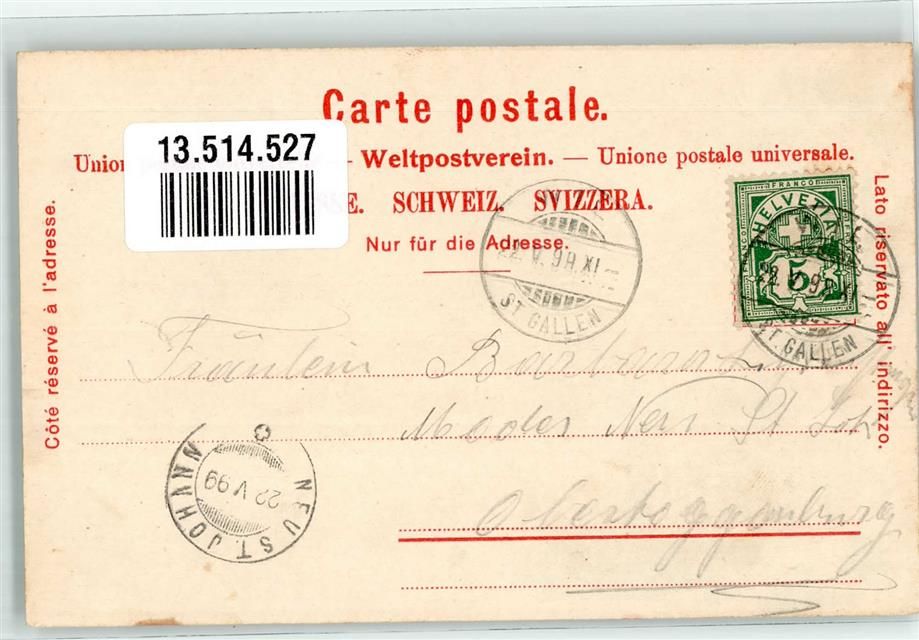 Carte postale.
13.514.527
Union — Weltpostverein. — Unione postale universale.
E. SCHWEIZ. SVIZZERA.
Nur für die Adresse.
Côté réservé à l'adresse.
Lato riservato all' indirizzo.
FRANCO
HELVETIA
5
22. V. 99. XI
ST. GALLEN
22. V. 99. XI
ST. GALLEN
Fräulein Barbara
Neu St. Joh
Obertoggenburg
NEU ST. JOHANN
22 V 99